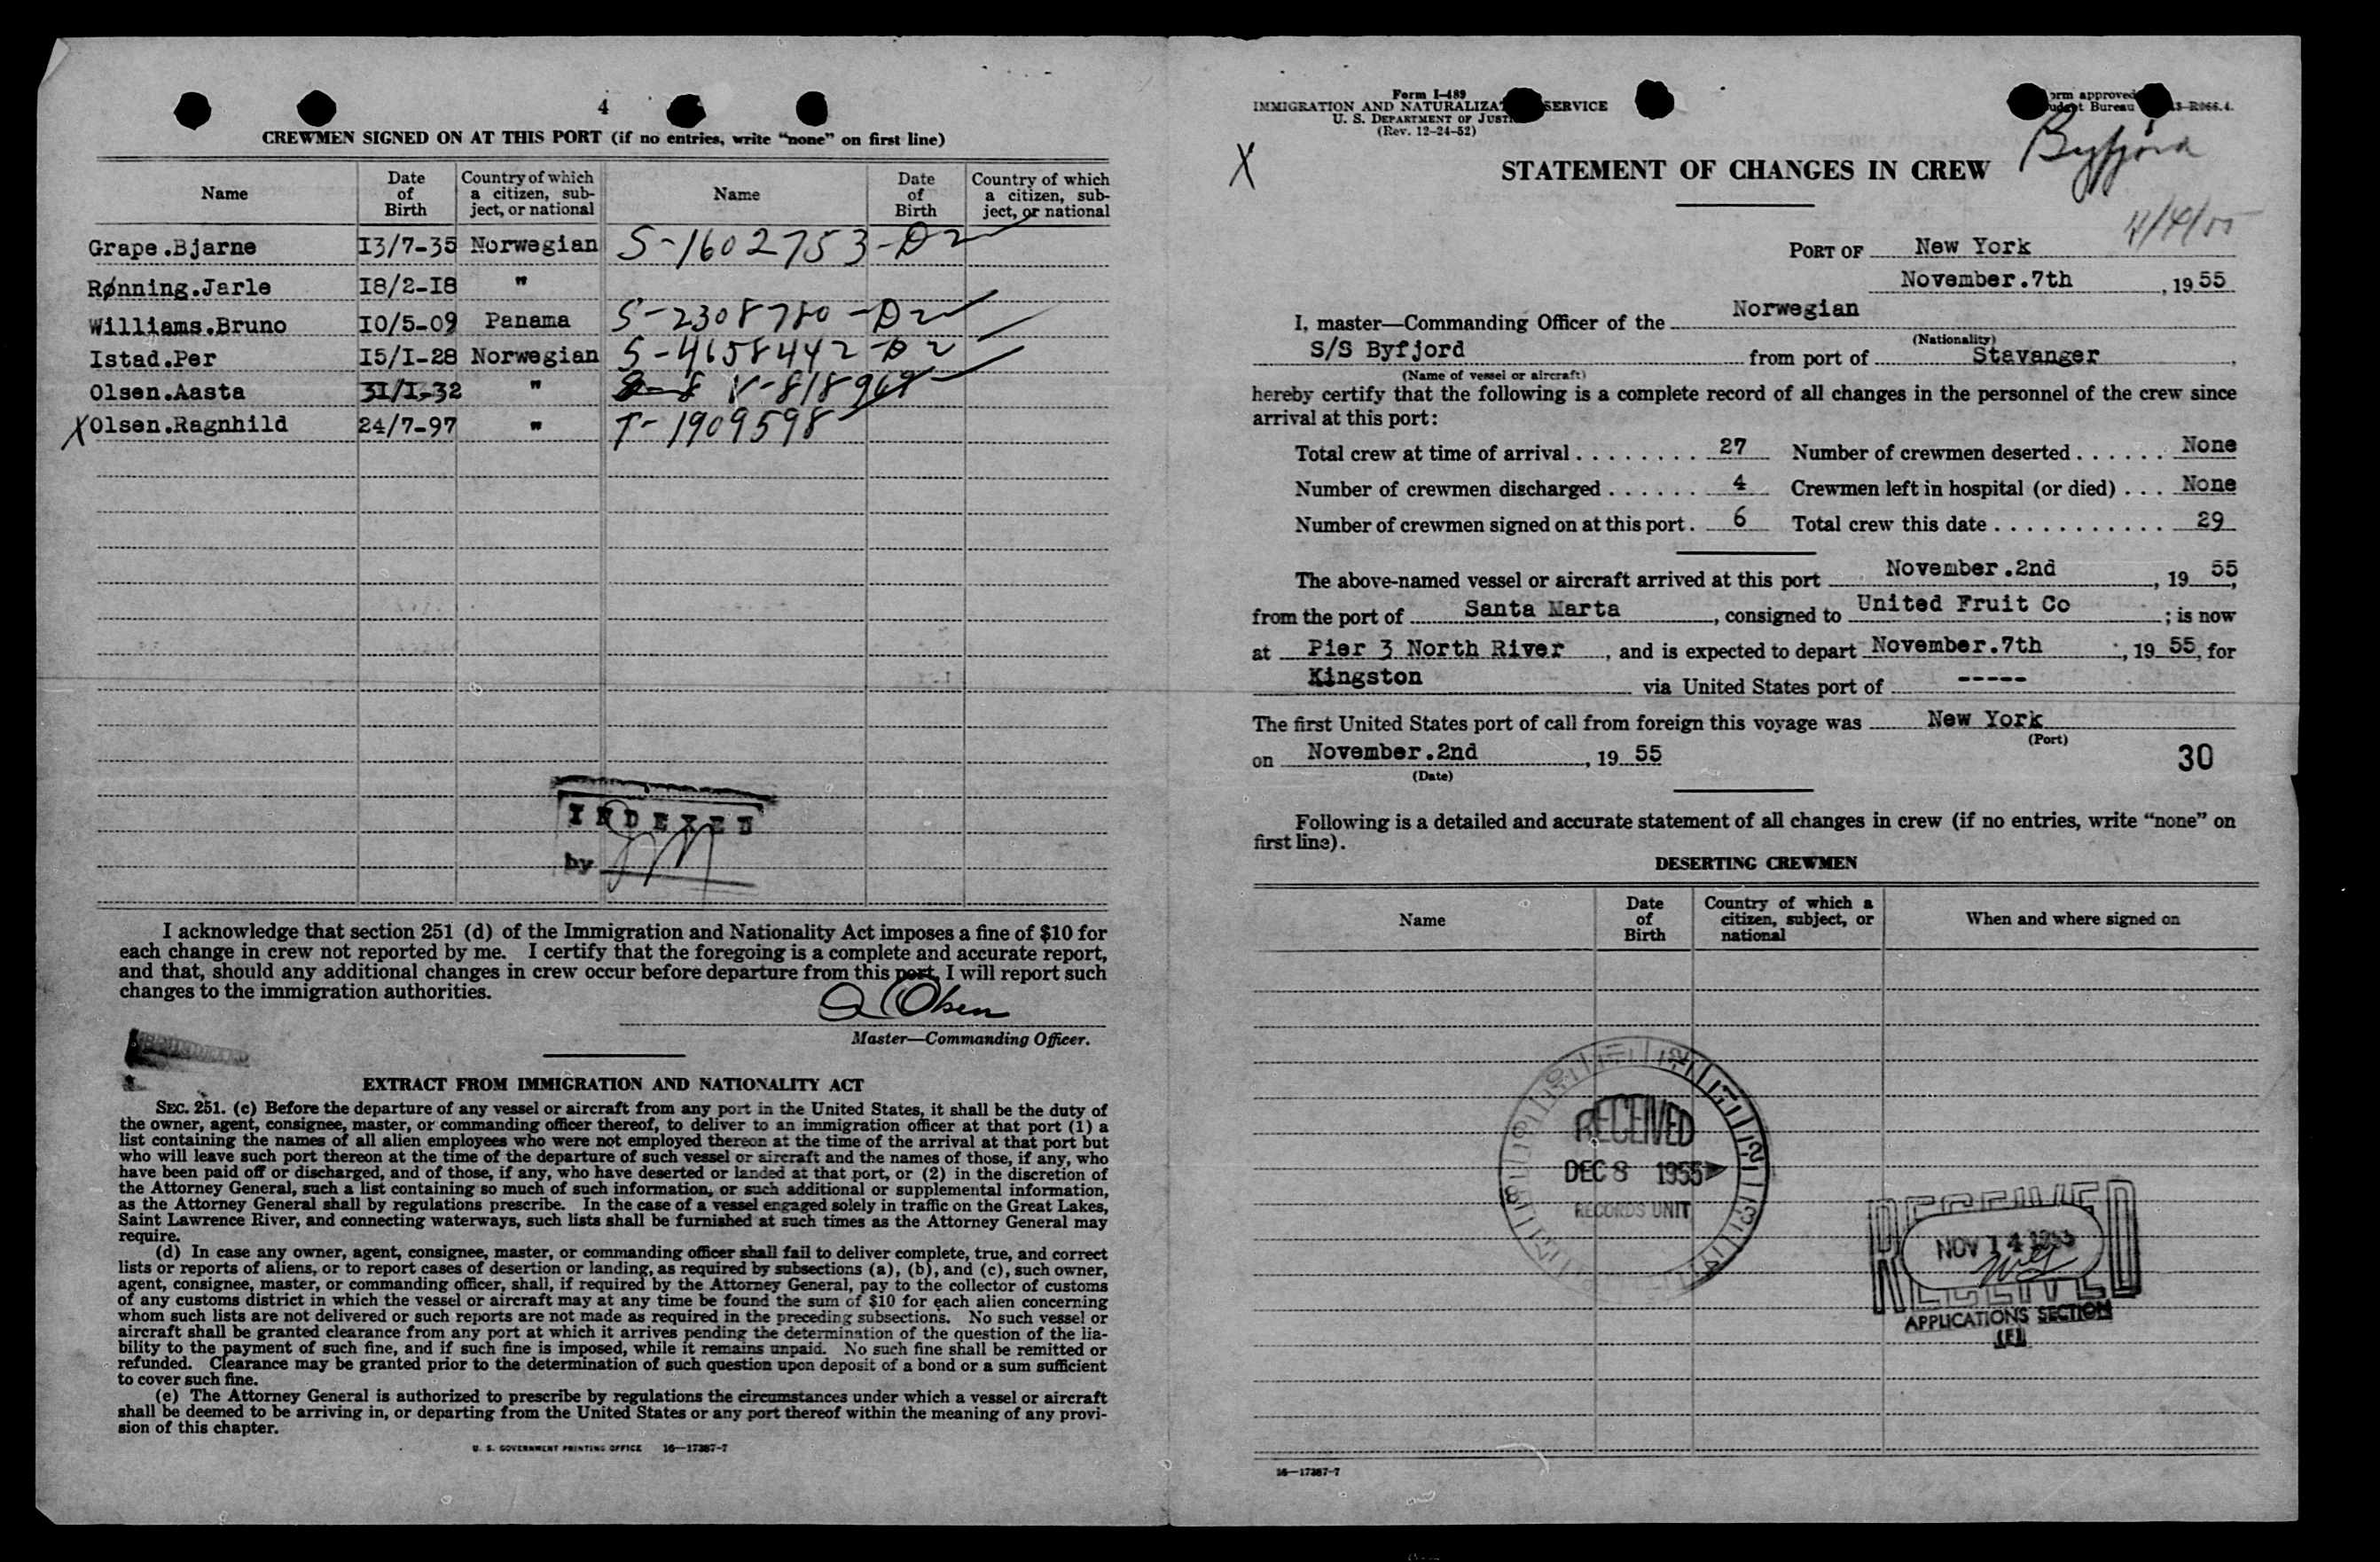 4
CREWMEN SIGNED ON AT THIS PORT (if no entries, write “none” on first line)
Name Date of Birth Country of which a citizen, subject, or national Name Date of Birth Country of which a citizen, subject, or national
Grape.Bjarne I3/7-35 Norwegian S-1602753-D2
Rønning.Jarle I8/2-I8 "
Williams.Bruno I0/5-09 Panama S-2308780-D2
Istad.Per I5/I-28 Norwegian S-4658442-D2
Olsen.Aasta 3I/I-32 " V-818968
X Olsen.Ragnhild 24/7-97 " T-1909598
INDEXED
by
I acknowledge that section 251 (d) of the Immigration and Nationality Act imposes a fine of $10 for
each change in crew not reported by me. I certify that the foregoing is a complete and accurate report,
and that, should any additional changes in crew occur before departure from this port, I will report such
changes to the immigration authorities.
A Olsen
Master—Commanding Officer.
EXTRACT FROM IMMIGRATION AND NATIONALITY ACT
SEC. 251. (c) Before the departure of any vessel or aircraft from any port in the United States, it shall be the duty of
the owner, agent, consignee, master, or commanding officer thereof, to deliver to an immigration officer at that port (1) a
list containing the names of all alien employees who were not employed thereon at the time of the arrival at that port but
who will leave such port thereon at the time of the departure of such vessel or aircraft and the names of those, if any, who
have been paid off or discharged, and of those, if any, who have deserted or landed at that port, or (2) in the discretion of
the Attorney General, such a list containing so much of such information, or such additional or supplemental information,
as the Attorney General shall by regulations prescribe. In the case of a vessel engaged solely in traffic on the Great Lakes,
Saint Lawrence River, and connecting waterways, such lists shall be furnished at such times as the Attorney General may
require.
(d) In case any owner, agent, consignee, master, or commanding officer shall fail to deliver complete, true, and correct
lists or reports of aliens, or to report cases of desertion or landing, as required by subsections (a), (b), and (c), such owner,
agent, consignee, master, or commanding officer, shall, if required by the Attorney General, pay to the collector of customs
of any customs district in which the vessel or aircraft may at any time be found the sum of $10 for each alien concerning
whom such lists are not delivered or such reports are not made as required in the preceding subsections. No such vessel or
aircraft shall be granted clearance from any port at which it arrives pending the determination of the question of the lia-
bility to the payment of such fine, and if such fine is imposed, while it remains unpaid. No such fine shall be remitted or
refunded. Clearance may be granted prior to the determination of such question upon deposit of a bond or a sum sufficient
to cover such fine.
(e) The Attorney General is authorized to prescribe by regulations the circumstances under which a vessel or aircraft
shall be deemed to be arriving in, or departing from the United States or any port thereof within the meaning of any provi-
sion of this chapter.
U. S. GOVERNMENT PRINTING OFFICE 16—17387-7
Form I-489
IMMIGRATION AND NATURALIZATION SERVICE
U. S. DEPARTMENT OF JUSTICE
(Rev. 12-24-52)
Form approved
Budget Bureau R066.4.
Byfjord
X
STATEMENT OF CHANGES IN CREW
PORT OF New York
November.7th, 1955
I, master—Commanding Officer of the Norwegian
(Nationality)
S/S Byfjord from port of Stavanger,
(Name of vessel or aircraft)
hereby certify that the following is a complete record of all changes in the personnel of the crew since
arrival at this port:
Total crew at time of arrival . . . . . . . . 27 Number of crewmen deserted . . . . . . None
Number of crewmen discharged . . . . . . 4 Crewmen left in hospital (or died) . . . None
Number of crewmen signed on at this port . 6 Total crew this date . . . . . . . . . . . 29
The above-named vessel or aircraft arrived at this port November.2nd, 1955,
from the port of Santa Marta, consigned to United Fruit Co; is now
at Pier 3 North River, and is expected to depart November.7th, 1955, for
Kingston via United States port of -----
The first United States port of call from foreign this voyage was New York
(Port)
on November.2nd, 1955
(Date)
30
Following is a detailed and accurate statement of all changes in crew (if no entries, write “none” on
first line).
DESERTING CREWMEN
Name Date of Birth Country of which a citizen, subject, or national When and where signed on
RECEIVED
DEC 8 1955
RECORDS UNIT
RECEIVED
NOV 14 1955
RECEIVED
APPLICATIONS SECTION
(E)
16—17387-7